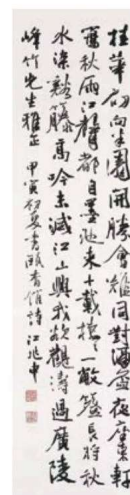 桂華初向半園開勝會難同對酒盃夜虛軒
窗秋雨江聲都自墨池來十載攜一敝簏長將秋
水染谿藤高吟未減江山興我欲觀濤過廣陵
峰竹先生雅正 甲寅初夏書甌香館詩 江兆申